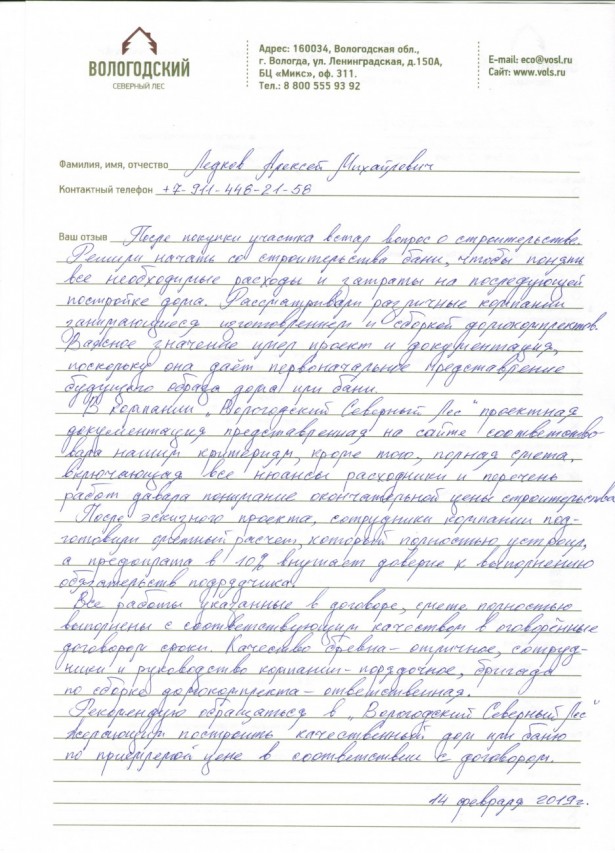 ВОЛОГОДСКИЙ
СЕВЕРНЫЙ ЛЕС
Адрес: 160034, Вологодская обл.,
г. Вологда, ул. Ленинградская, д.150А,
БЦ «Микс», оф. 311.
Тел.: 8 800 555 93 92
E-mail: eco@vosl.ru
Сайт: www.vols.ru
Фамилия, имя, отчество Ледков Алексей Михайлович
Контактный телефон +7-911-446-21-58
Ваш отзыв После покупки участка встал вопрос о строительстве.
Решили начать со строительства бани, чтобы понять
все необходимые расходы и затраты на последующей
постройке дома. Рассматривали различные компании
занимающиеся изготовлением и сборкой домокомплектов.
Важное значение имел проект и документация,
поскольку она даёт первоначальное представление
будущего образа дома или бани.
В компании „Вологодский Северный Лес" проектная
документация представленная на сайте соответство-
вала нашим критериям, кроме того, полная смета,
включающая все нюансы расходники и перечень
работ давала понимание окончательной цены строительства.
После эскизного проекта, сотрудники компании под-
готовили сметный расчет, который полностью устроил,
а предоплата в 10% внушает доверие к выполнению
обязательств подрядчика.
Все работы указанные в договоре, смете полностью
выполнены с соответствующим качеством в оговорённые
договором сроки. Качество бревна - отличное, сотруд-
ники и руководство компании - порядочное, бригада
по сборке домокомплекта - ответственная.
Рекомендую обращаться в „Вологодский Северный Лес"
желающим построить качественный дом или баню
по приемлемой цене в соответствии с договором.
14 февраля 2019г.